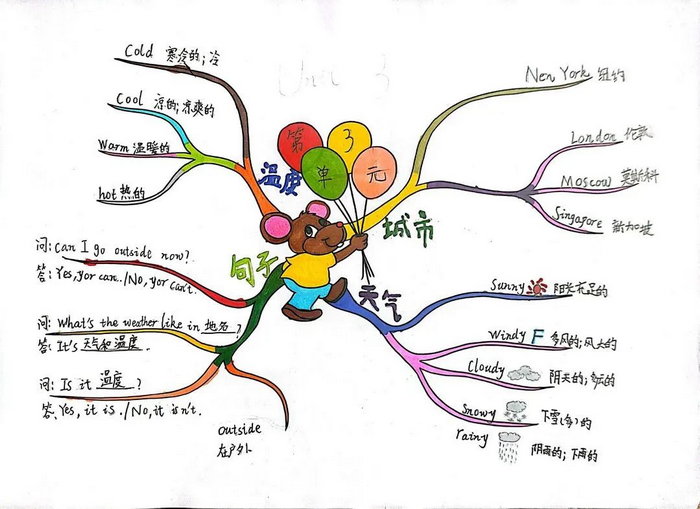 Unit 3
第
3
单
元
温度
Cold 寒冷的;冷
Cool 凉的;凉爽的
Warm 温暖的
hot 热的
城市
New York 纽约
London 伦敦
Moscow 莫斯科
Singapore 新加坡
句子
问: Can I go outside now?
答: Yes, yor can. /No, yor can't.
问: What's the weather like in 地名?
答: It's 天气和温度.
问: Is it 温度?
答: Yes, it is. /No, it isn't.
outside
在户外
天气
Sunny 阳光充足的
Windy 多风的;风大的
Cloudy 阴天的;多云的
Snowy 下雪(多)的
rainy 阴雨的;下雨的